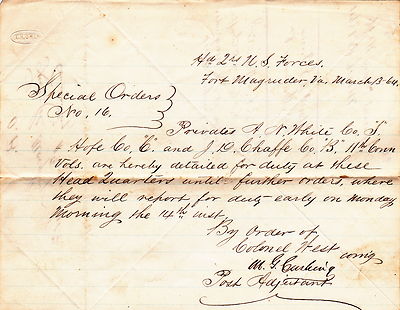 Hd 2rs U. S. Forces.
Fort Magruder, Va. March 13 64.
Special Orders
No. 16.
Privates A. N. White Co. "I,"
Hofe Co. "E." and J. D. Chaffe Co. "B" 11th Conn
Vols. are hereby detailed for duty at these
Head Quarters until further orders, where
they will report for duty early on Monday
Morning the 14th inst.
By Order of
Colonel West
comg
M. G.
Post Adjutant